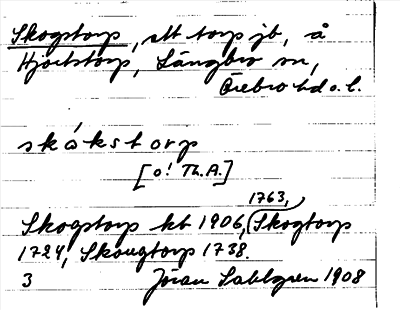 Skogstorp, ett torp jb, å
Hjortstorp, Längbro sn,
Örebro hd o. l.
skåkstorp
[o! Th.A.]
1763,
Skogstorp kb 1906, (Skogtorp
1724, Skougtorp 1738.
3 Jöran Sahlgren 1908